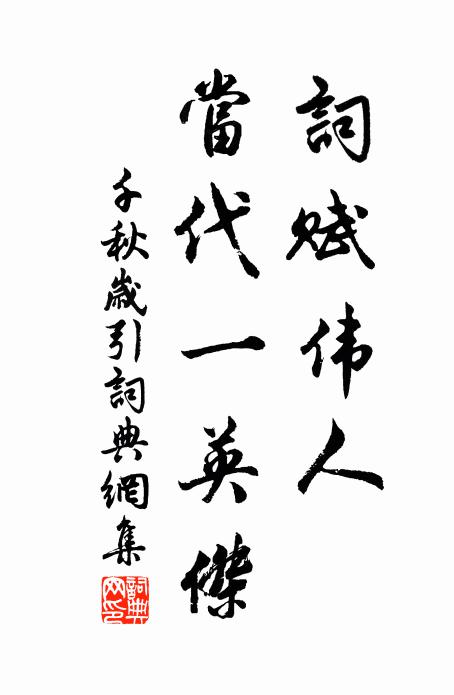 詞赋伟人
當代一英傑
千秋歲引詞典網集
詞典
网印